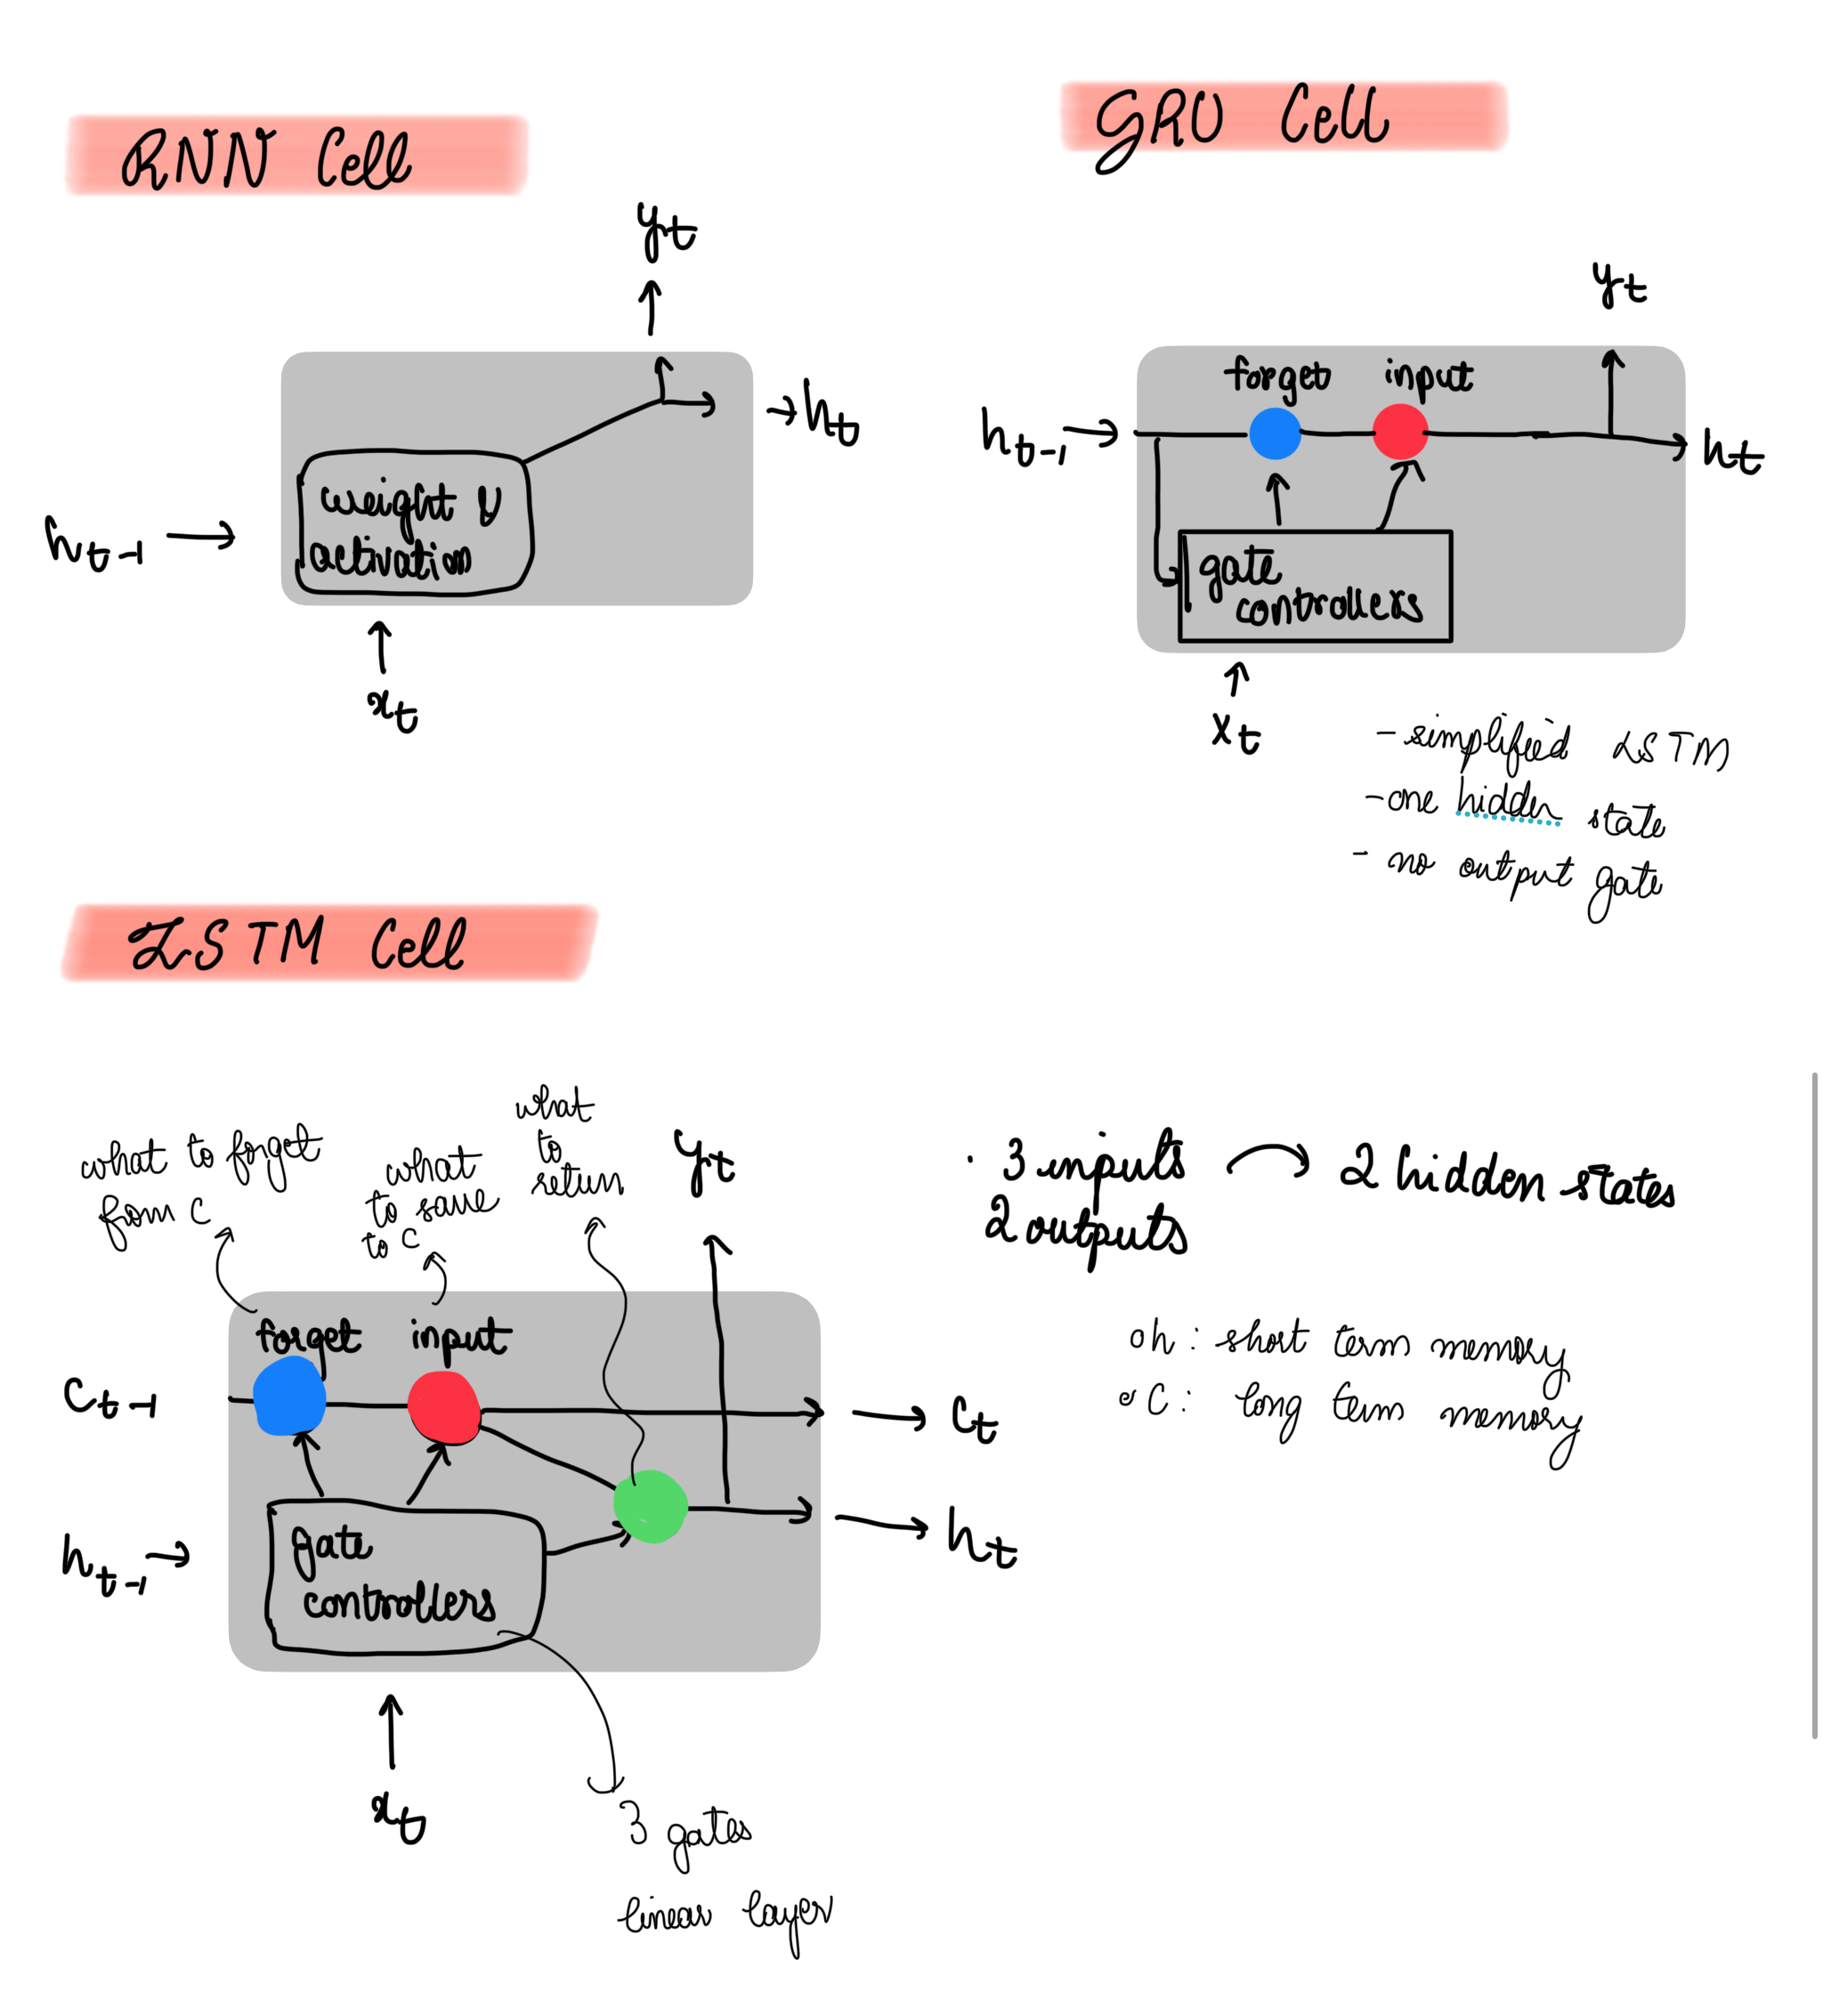 RNN Cell
yt
ht
weight &
activation
ht-1
xt
GRU Cell
yt
forget input
ht-1
ht
gate
controllers
xt
- simplified LSTM
- one hidden state
- no output gate
LSTM Cell
what to forget
from c
what
to save
to c
what
to
return
yt
forget input
ct-1
ct
ht-1
ht
gate
controllers
xt
3 gates
linear layer
· 3 inputs → 2 hidden states
2 outputs
h : short term memory
C : long term memory